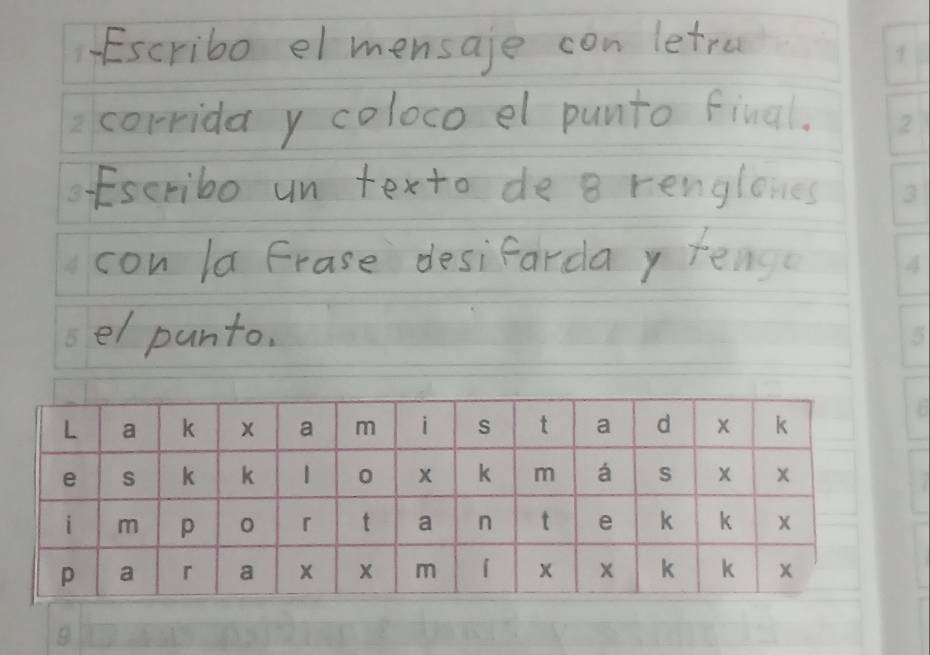 1 -Escribo el mensaje con letra 1
2 corrida y coloco el punto final. 2
3 -Escribo un texto de 8 renglones 3
4 con la frase desifarda y tengo 4
5 el punto. 5
6
L a k x a m i s t a d x k
e s k k l o x k m á s x x
i m p o r t a n t e k k x
p a r a x x m í x x k k x
9